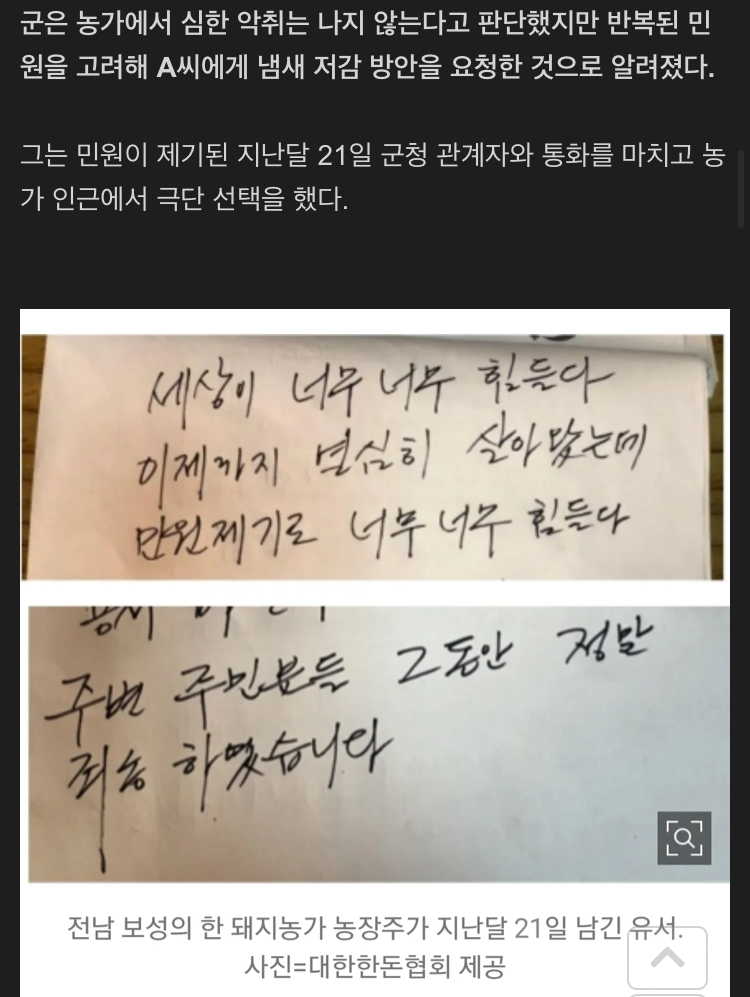 군은 농가에서 심한 악취는 나지 않는다고 판단했지만 반복된 민
원을 고려해 A씨에게 냄새 저감 방안을 요청한 것으로 알려졌다.
그는 민원이 제기된 지난달 21일 군청 관계자와 통화를 마치고 농
가 인근에서 극단 선택을 했다.
세상이 너무 너무 힘들다
이제까지 열심히 살아 왔는데
민원제기로 너무 너무 힘들다
주변 주민분들 그동안 정말
죄송 하였습니다
전남 보성의 한 돼지농가 농장주가 지난달 21일 남긴 유서.
사진=대한한돈협회 제공